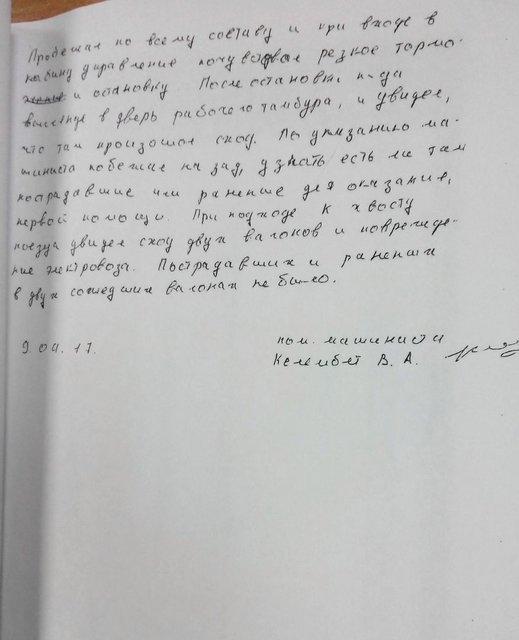 Пробежал по всему составу и при входе в
кабину управление почувствовал резкое тормо-
и остановку После остановки п-да
выгленув в дверь рабочего тамбура, и увидел,
что там произошол сход. По указанию ма-
шиниста побежал на зад, узнать есть ли там
пострадавшие или раненые для оказание,
первой помощи. При подходе к хвосту
поезда увидел сход двух вагонов и поврежде-
ние электровоза. Пострадавших и раненых
в двух сошедших вагонах не было.
9.04.17. пом. машиниста
Келембет В. А.